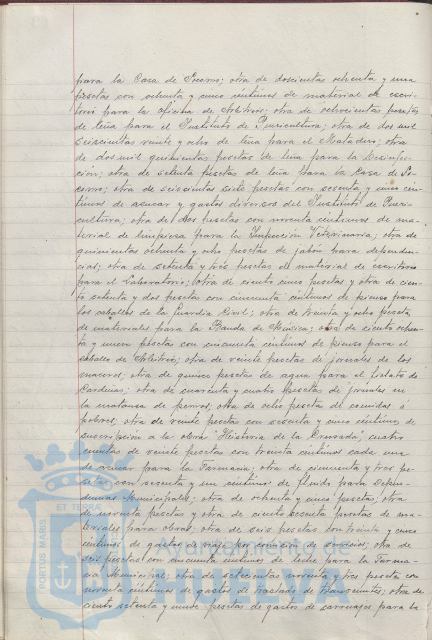 para la Casa de Socorro; otra de doscientas ochenta y una
pesetas con ochenta y cinco céntimos de material de escri-
torio para la oficina de Arbitrios; otra de ochocientas pesetas
de leña para el Instituto de Puericultura; otra de dos mil
seiscientas veinte y ocho de leña para el Matadero; otra
de dos mil quinientas pesetas de leña para la Desinfec-
ción; otra de setenta pesetas de leña para la Casa de So-
corro; otra de seiscientas siete pesetas con sesenta y cinco cén-
timos de azucar y gastos diversos del Instituto de Pueri-
cultura; otra de dos pesetas con noventa céntimos de ma-
terial de limpieza para la Inspección Veterinaria; otra de
quinientas ochenta y ocho pesetas de jabón para dependen-
cias; otra de setenta y tres pesetas de material de escritorio
para el Laboratorio; otra de ciento cinco pesetas y otra de cien-
to setenta y dos pesetas con cincuenta céntimos de pienso para
los caballos de la Guardia Civil; otra de treinta y ocho pesetas
de materiales para la Banda de Música; otra de ciento ochen-
ta y una pesetas con cincuenta céntimos de pienso para el
caballo de Arbitrios; otra de veinte pesetas de jornales de los
maceros; otra de quince pesetas de agua para el
Cardeñas; otra de cuarenta y cuatro pesetas de jornales en
la matanza de perros; otra de ocho pesetas de comidas á
pobres; otra de veinte pesetas con sesenta y cinco céntimos de
suscripción a la obra Historia de la Cruzada; cuatro
cuentas de veinte pesetas con treinta céntimos cada una
de azucar para la Farmacia; otra de cincuenta y tres pe-
setas con sesenta y un céntimos de fluido para Depen-
dencias Municipales; otra de ochenta y cinco pesetas, otra
de noventa pesetas y otra de ciento sesenta pesetas de ma-
teriales para obras; otra de seis pesetas con treinta y cinco
céntimos de gastos de viaje por comisión de servicios; otra de
seis pesetas con cincuenta céntimos de leche para la Farma-
cia Municipal; otra de setecientas noventa y tres pesetas con
noventa céntimos de gastos de traslado de transeuntes; otra de
ciento setenta y nueve pesetas de gastos de carruajes para la
ET TERRA
PORTUS MARIS
Ayuntamiento de
HUELVA